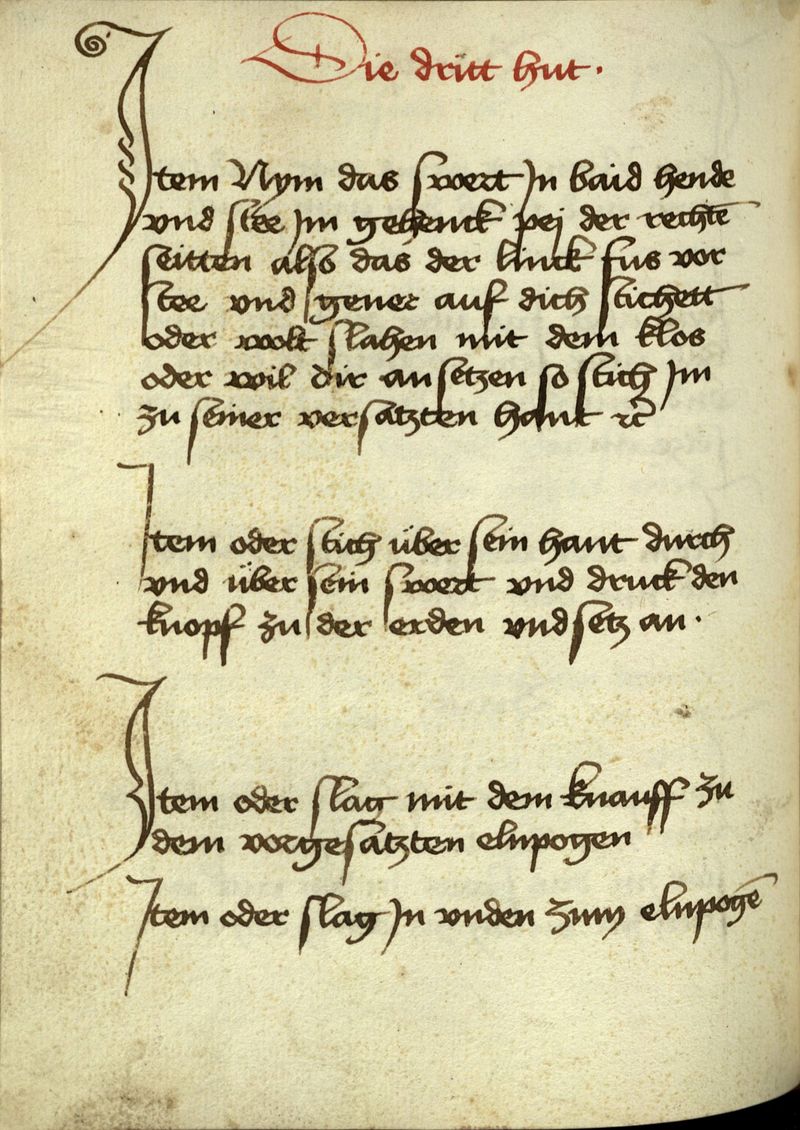 Die dritt hut ·
Item Nym das swert Jn baid hende
vnd stee Jm gehenck pej der rechtē
seitten also das der linck fus vor
stee vnd gener auf dich stichett
oder wolt slahen mit dem klos
oder wil dir an setzen so stich Jm
zu seiner versatzten hant ꝛc̄
Item oder stich über sein hant durch
vnd über sein swert vnd druck den
knopf zu der erden vnd setz an ·
Item oder slag mit dem knauff zu
dem vorgesatzten elnpogen
Item oder slag Jn vnden zum elnpogē